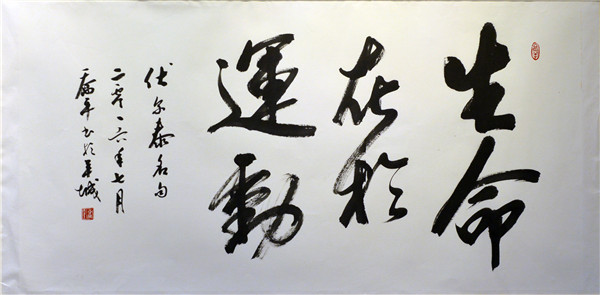 生命
在於
運動
伏尔泰名句
二零一六年七月
年书於羊城